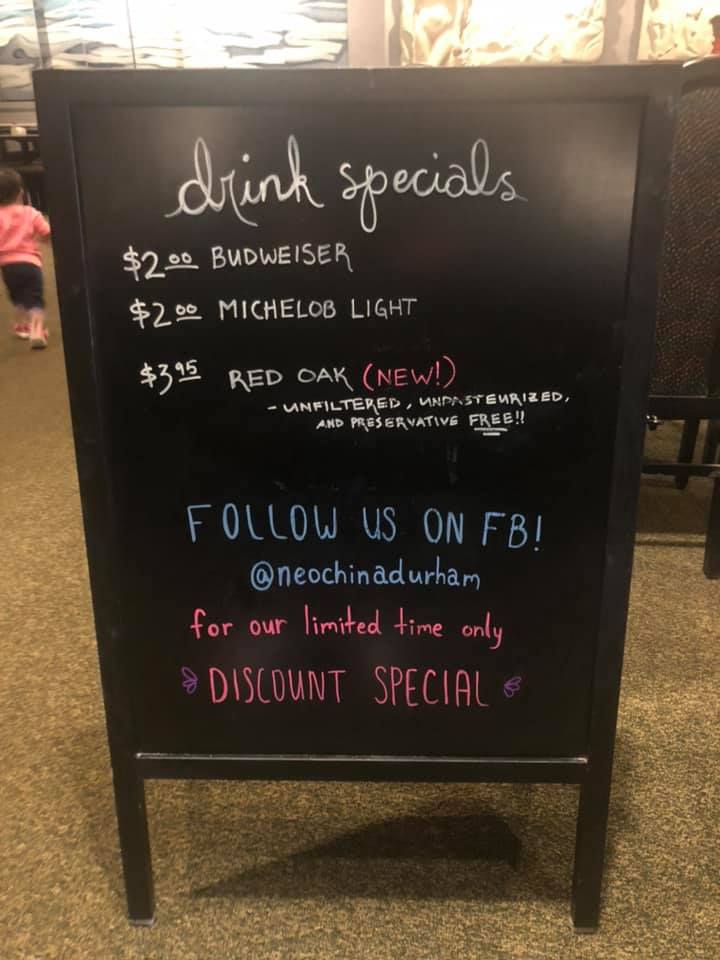 drink specials
$2.00 BUDWEISER
$2.00 MICHELOB LIGHT
$3.95 RED OAK (NEW!)
- UNFILTERED, UNPASTEURIZED,
AND PRESERVATIVE FREE!!
FOLLOW US ON FB!
@neochinadurham
for our limited time only
DISCOUNT SPECIAL